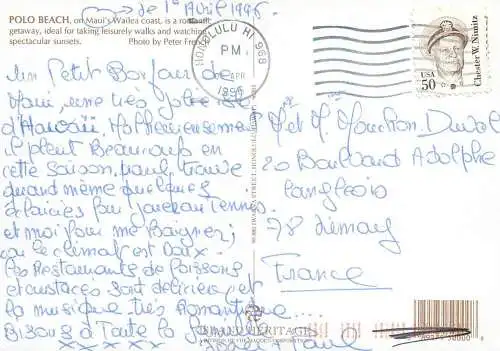 de 1er Avril 1996
POLO BEACH, on Maui's Wailea coast, is a romantic
getaway, ideal for taking leisurely walks and watching
spectacular sunsets. Photo by Peter French
HONOLULU HI 968
PM
APR
1996
USA
50
Chester W. Nimitz
Un Petit Bonjour de
Maui, une très Jolie île
d'Hawaii, Malheureusement
il pleut Beaucoup en
cette Saison, paul trouve
quand même quelques
éclaircies pour jouer au Tennis
et moi pour me Baigner,
car le climat est Doux.
Les Restaurants de Poissons
et crustacés sont délicieux et
la musique très Romantique....
Bisous à Toute la
xxxxx Paul
M et M Duval
20 Boulevard Adolphe
Langlois
78
France
HERITAGE